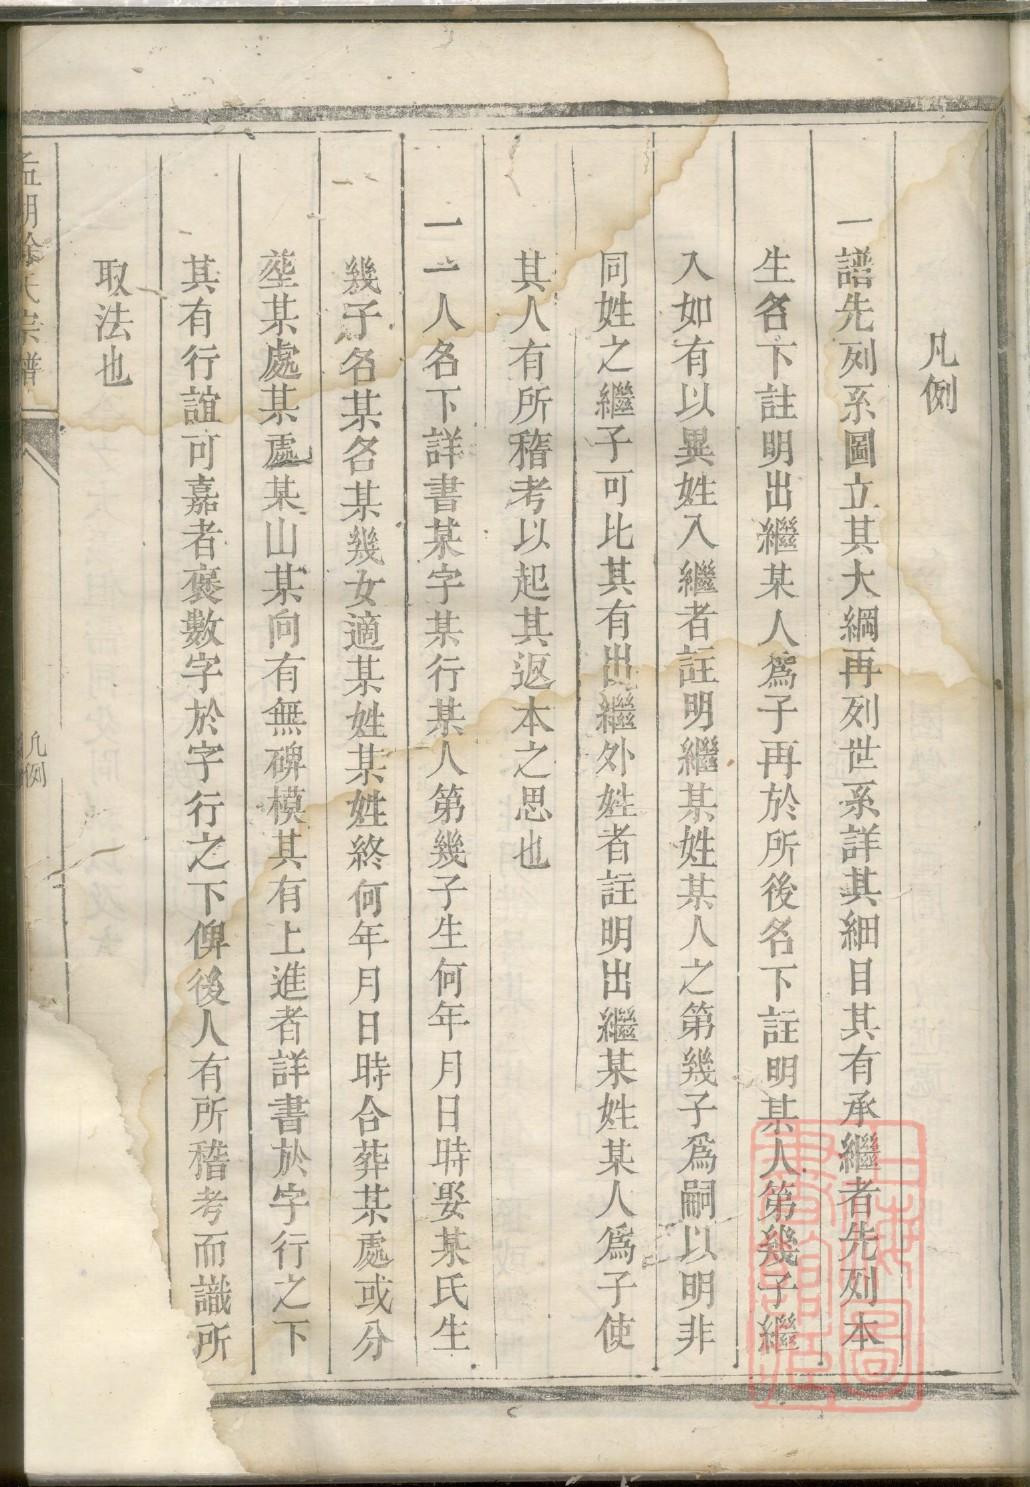 凡例
一譜先列系圖立其大綱再列世系詳其細目其有承繼者先列本
生名下註明出繼某人爲子再於所後名下註明某人第幾子繼
入如有以異姓入繼者註明繼某姓某人之第幾子爲嗣以明非
同姓之繼子可比其有出繼外姓者註明出繼某姓某人爲子使
其人有所稽考以起其返本之思也
一一人名下詳書某字某行某人第幾子生何年月日時娶某氏生
幾子名某名某幾女適某姓某姓終何年月日時合葬某處或分
塋某處某處某山某向有無碑模其有上進者詳書於字行之下
其有行誼可嘉者褒數字於字行之下俾後人有所稽考而識所
取法也
孟湖徐氏宗譜
凡例